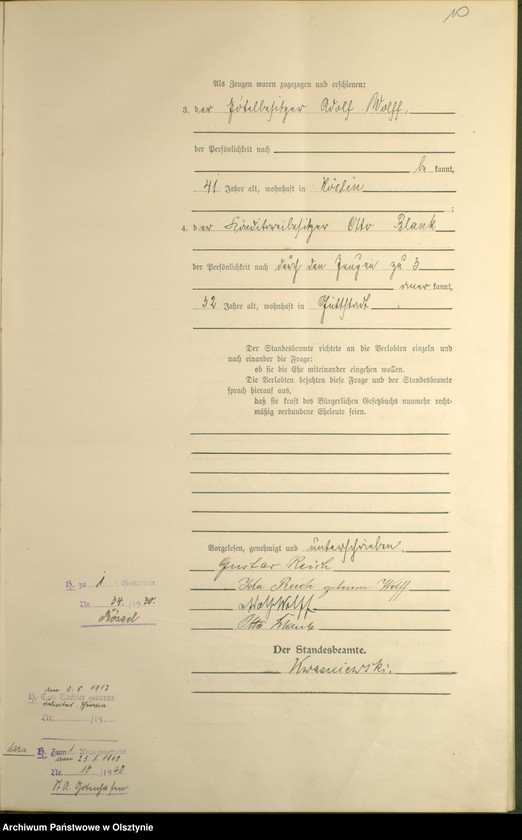 10
Als Zeugen waren zugezogen und erschienen:
3. der Hôtelbesitzer Adolf Wolff,
der Persönlichkeit nach
be kannt,
41 Jahre alt, wohnhaft in
;
4. der Konditoreibesitzer Otto Blank
der Persönlichkeit nach durch den Zeugen zu 3
aner kannt,
32 Jahre alt, wohnhaft in Guttstadt.
Der Standesbeamte richtete an die Verlobten einzeln und
nach einander die Frage:
ob sie die Ehe miteinander eingehen wollen.
Die Verlobten bejahten diese Frage und der Standesbeamte
sprach hierauf aus,
daß sie kraft des Bürgerlichen Gesetzbuchs nunmehr recht-
mäßig verbundene Eheleute seien.
Vorgelesen, genehmigt und unterschrieben.
Gustav Reich
Ida Reich geborene Wolff
Adolf Wolff
Otto Blank
Der Standesbeamte.
Kwasniewski.
H. zu 1 : Geheiratet
Nr. 34 /1930.
Rössel
am 2.5 1913
H. Eine Tochter geboren
Nr. /19
dazu H. Zum 1 Male geheiratet
am 25.1.1940
Nr. 18 /1940
St.A. Gotenhafen
Archiwum Państwowe w Olsztynie